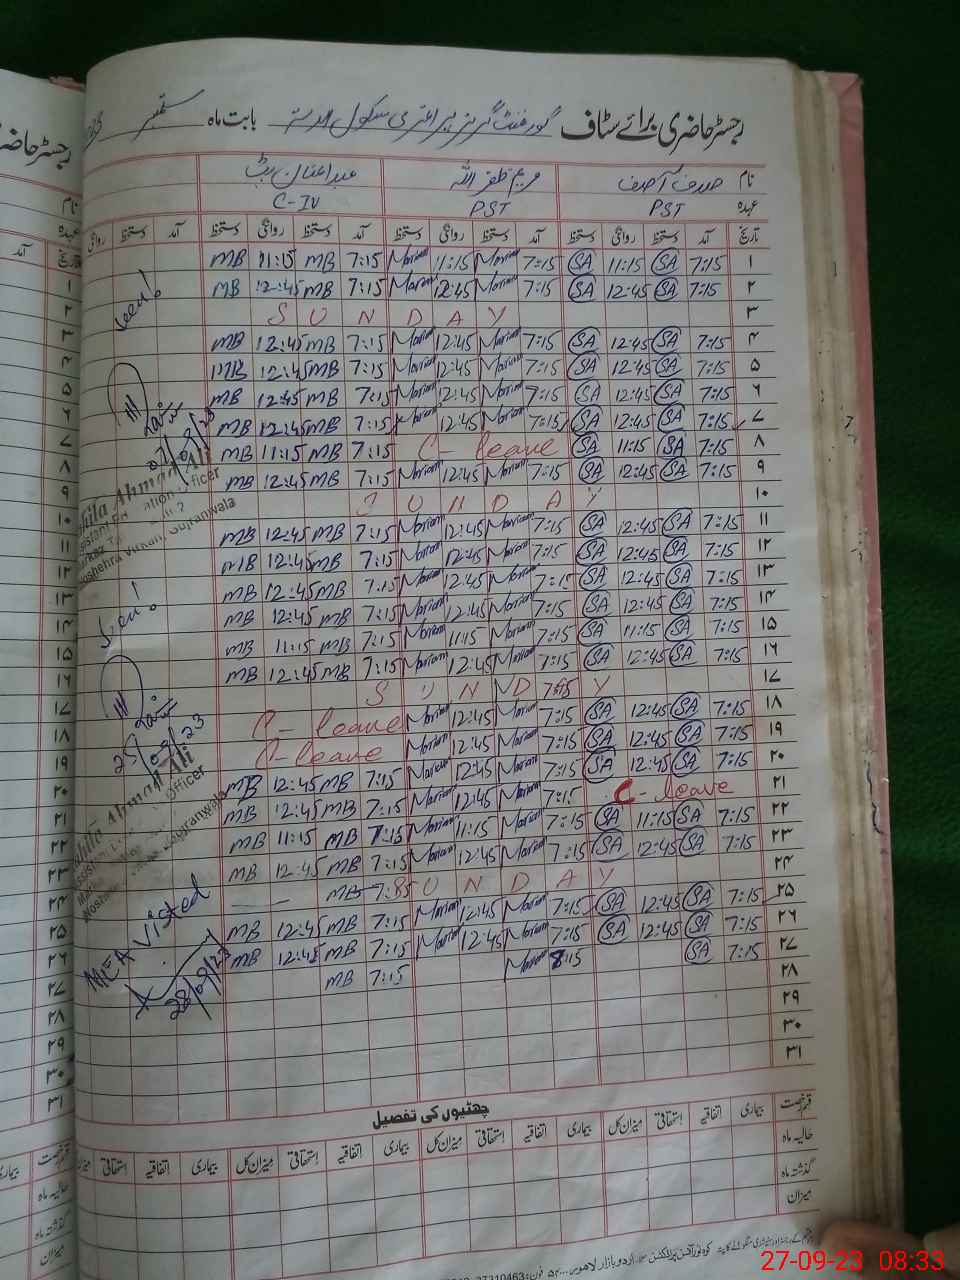 رجسٹر حاضری برائے سٹاف گورنمنٹ گرلز پرائمری سکول بابت ماہ ستمبر
نام صدف آصف مریم ظفر اللہ
عہدہ PST PST C-IV
تاریخ آمد دستخط روانگی دستخط آمد دستخط روانگی دستخط آمد دستخط روانگی دستخط آمد دستخط روانگی
۱ 7:15 SA 11:15 SA 7:15 Mariam 11:15 Mariam 7:15 MB 11:15 MB
۲ 7:15 SA 12:45 SA 7:15 Mariam 12:45 Mariam 7:15 MB 12:45 MB
۳ S U N D A Y
۴ 7:15 SA 12:45 SA 7:15 Mariam 12:45 Mariam 7:15 MB 12:45 MB
۵ 7:15 SA 12:45 SA 7:15 Mariam 12:45 Mariam 7:15 MB 12:45 MB
۶ 7:15 SA 12:45 SA 7:15 Mariam 12:45 Mariam 7:15 MB 12:45 MB
۷ 7:15 SA 12:45 SA 7:15 Mariam 12:45 Mariam 7:15 MB 12:45 MB
۸ 7:15 SA 11:15 SA C- leave 7:15 MB 11:15 MB
۹ 7:15 SA 12:45 SA 7:15 Mariam 12:45 Mariam 7:15 MB 12:45 MB
۱۰ S U N D A Y
۱۱ 7:15 SA 12:45 SA 7:15 Mariam 12:45 Mariam 7:15 MB 12:45 MB
۱۲ 7:15 SA 12:45 SA 7:15 Mariam 12:45 Mariam 7:15 MB 12:45 MB
۱۳ 7:15 SA 12:45 SA 7:15 Mariam 12:45 Mariam 7:15 MB 12:45 MB
۱۴ 7:15 SA 12:45 SA 7:15 Mariam 12:45 Mariam 7:15 MB 12:45 MB
۱۵ 7:15 SA 11:15 SA 7:15 Mariam 11:15 Mariam 7:15 MB 11:15 MB
۱۶ 7:15 SA 12:45 SA 7:15 Mariam 12:45 Mariam 7:15 MB 12:45 MB
۱۷ S U N D A Y
۱۸ 7:15 SA 12:45 SA 7:15 Mariam 12:45 Mariam C- leave
۱۹ 7:15 SA 12:45 SA 7:15 Mariam 12:45 Mariam C- leave
۲۰ 7:15 SA 12:45 SA 7:15 Mariam 12:45 Mariam 7:15 MB 12:45 MB
۲۱ C- leave 7:15 Mariam 12:45 Mariam 7:15 MB 12:45 MB
۲۲ 7:15 SA 11:15 SA 7:15 Mariam 11:15 Mariam 7:15 MB 11:15 MB
۲۳ 7:15 SA 12:45 SA 7:15 Mariam 12:45 Mariam 7:15 MB 12:45 MB
۲۴ S U N D A Y
۲۵ 7:15 SA 12:45 SA 7:15 Mariam 12:45 Mariam 7:15 MB 12:45 MB
۲۶ 7:15 SA 12:45 SA 7:15 Mariam 12:45 Mariam 7:15 MB 12:45 MB
۲۷ 7:15 SA 8:15 Mariam 7:15 MB
۲۸
۲۹
۳۰
۳۱
Seen!
07/09/23
Officer
Noshehra Virkan, Gujranwala
Seen!
25/09/23
Officer
MEA Visted
28/09/23
چھٹیوں کی تفصیل
قسم رخصت بیماری اتفاقیہ استحقاقی میزان کل بیماری اتفاقیہ استحقاقی میزان کل بیماری اتفاقیہ استحقاقی میزان
حالیہ ماہ
گذشتہ ماہ
میزان
27-09-23 08:33